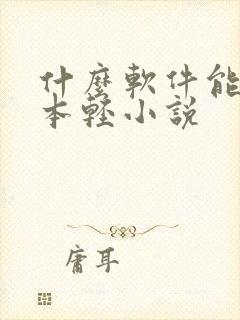 什麼軟件能
本輕小說
庸耳